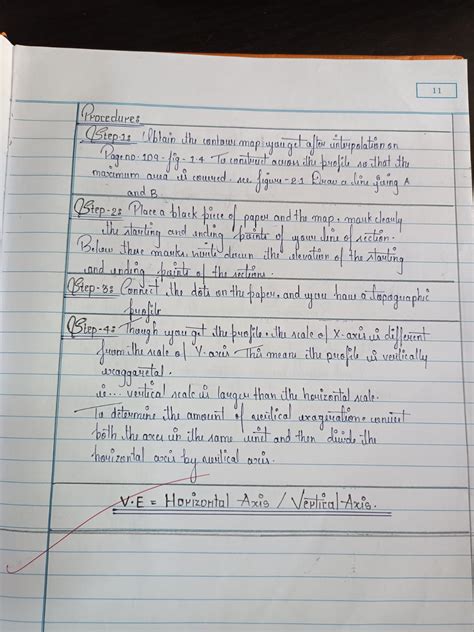 11
Procedures
Step-1: Obtain the contour map you get after interpolation on
Page no-109-fig-1.4 To construct across the profile so that the
maximum area is covered. see figure-2.1 Draw a line joining A
and B.
Step-2: Place a black piece of paper and the map, mark clearly
the starting and ending points of your line of section.
Below these marks write down the elevation of the starting
and ending points of the sections.
Step-3: Connect the dots on the paper, and you have a topographic
profile
Step-4: Though you get the profile, the scale of X-axis is different
from the scale of Y-axis This means the profile is vertically
exaggaretal.
ie... vertical scale is larger than the horizontal scale.
To determine the amount of vertical exageration convert
both the axes in the same unit and then divide the
horizontal axis by vertical axis.
V.E = Horizontal Axis / Vertical-Axis.